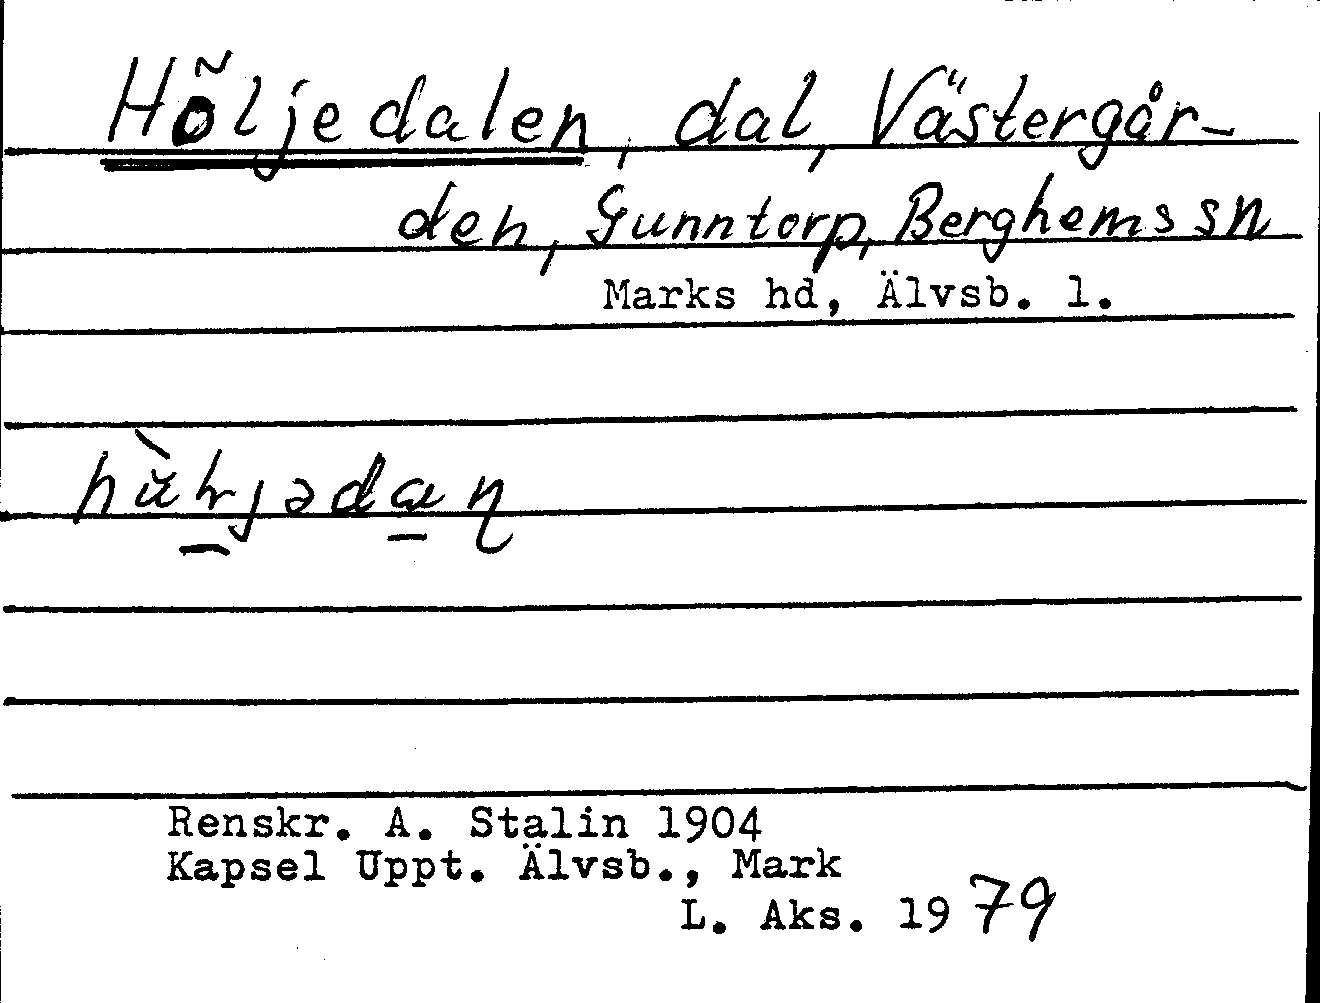 Höljedalen, dal, Västergår-
den, Gunntorp, Berghems sn
Marks hd, Älvsb. l.
Renskr. A. Stalin 1904
Kapsel Uppt. Älvsb., Mark
L. Aks. 1979